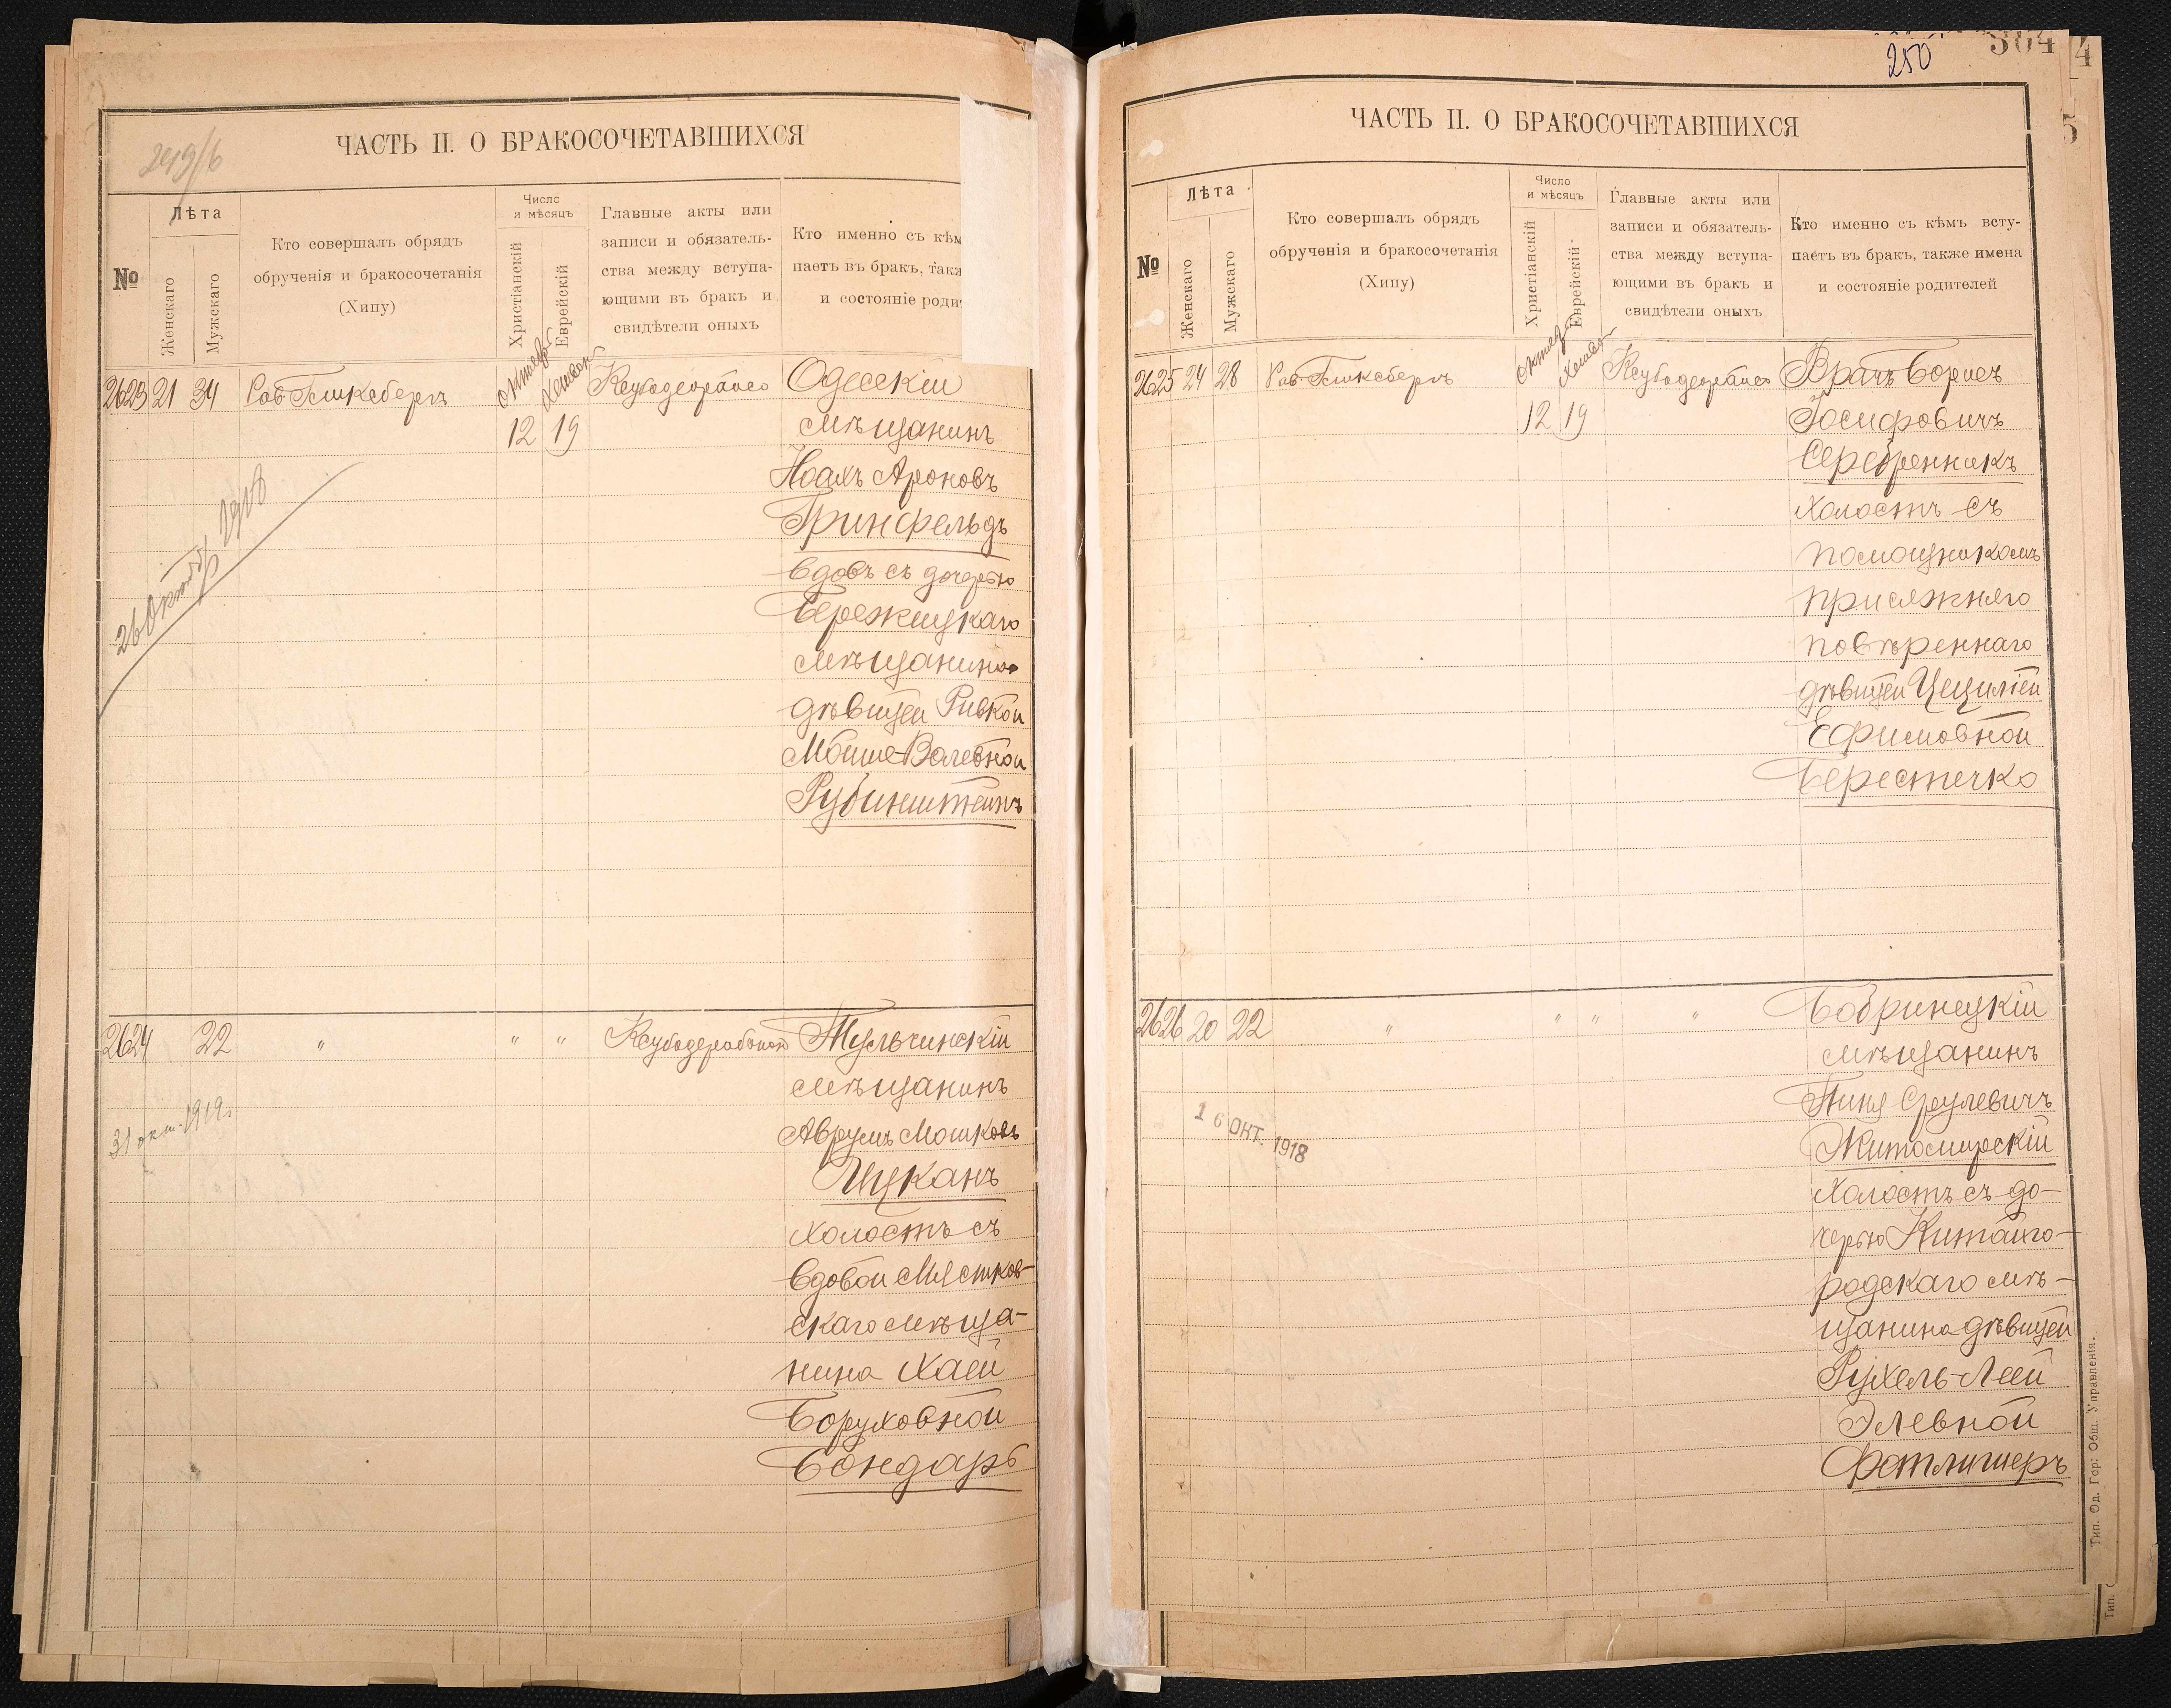 249/б
ЧАСТЬ II. О БРАКОСОЧЕТАВШИХСЯ
№
Лѣта
Женскаго
Мужскаго
Кто совершалъ обрядъ
обрученія и бракосочетанія
(Хипу)
Число
и мѣсяцъ
Христіанскій
Еврейскій
Главные акты или
записи и обязатель-
ства между вступа-
ющими въ бракъ и
свидѣтели оныхъ
Кто именно съ кѣм
паетъ въ бракъ, такж
и состояніе роди
2623 21 34
12 19
Одесскій
мѣщанинъ
Ноахъ Ароновъ
Гринфельдъ
вдовъ съ дочерью
Бережицкаго
мѣщанина
дѣвицей Ривкой
Мойше-Волевной
Рубинштейнъ
26 Октяб 1918
2624 22 " " "
Тульчинскій
мѣщанинъ
Аврумъ Мошковъ
Цуканъ
холостъ съ
вдовой Мястков-
скаго мѣща-
нина Хаей
Боруховной
Бондарь
31 окт. 1919г.
250
304
4
5
ЧАСТЬ II. О БРАКОСОЧЕТАВШИХСЯ
№
Лѣта
Женскаго
Мужскаго
Кто совершалъ обрядъ
обрученія и бракосочетанія
(Хипу)
Число
и мѣсяцъ
Христіанскій
Еврейскій
Главные акты или
записи и обязатель-
ства между вступа-
ющими въ бракъ и
свидѣтели оныхъ
Кто именно съ кѣмъ всту-
паетъ въ бракъ, также имена
и состояніе родителей
2625 24 28
12 19
Врачъ Борисъ
Іосифовичъ
Серебренникъ
холостъ съ
помощникомъ
присяжнаго
повѣреннаго
дѣвицей Цециліей
Ефимовной
Берестечко
2626 20 22 " " " "
Бобринецкій
мѣщанинъ
Пиня Срулевичъ
Житомирскій
холостъ съ до-
черью Китайго-
родскаго мѣ-
щанина дѣвицей
Рухель-Леей
Элевной
Фотлишеръ
16 ОКТ. 1918
Тип. Од. Гор. Общ. Управленія.
Тип.